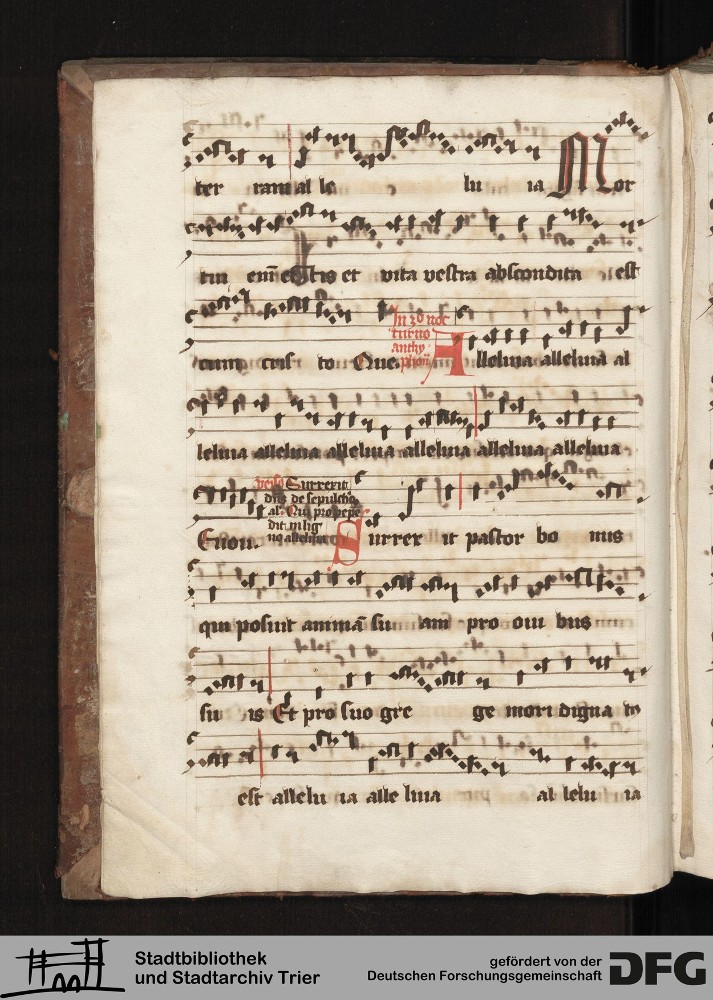 ter ram al le lu ia Mor
tui em̄ estis et vita vestra abscondita est
cum cris to Que.
In 2o noc
turno
anthy
phon̄
Alleluia alleluia al
leluia alleluia alleluia alleluia alleluia alleluia
verſ9 Surrexit
dn̄s de sepulcho
al. Qui pro
dit in lig
no alleluia
Euou. Surrex it pastor bo nus
qui posuit animā su am pro oui bus
su is Et pro suo gre ge mori digna tus
est allelu ia alle luia al lelu ia
Stadtbibliothek
und Stadtarchiv Trier
gefördert von der
Deutschen Forschungsgemeinschaft
DFG